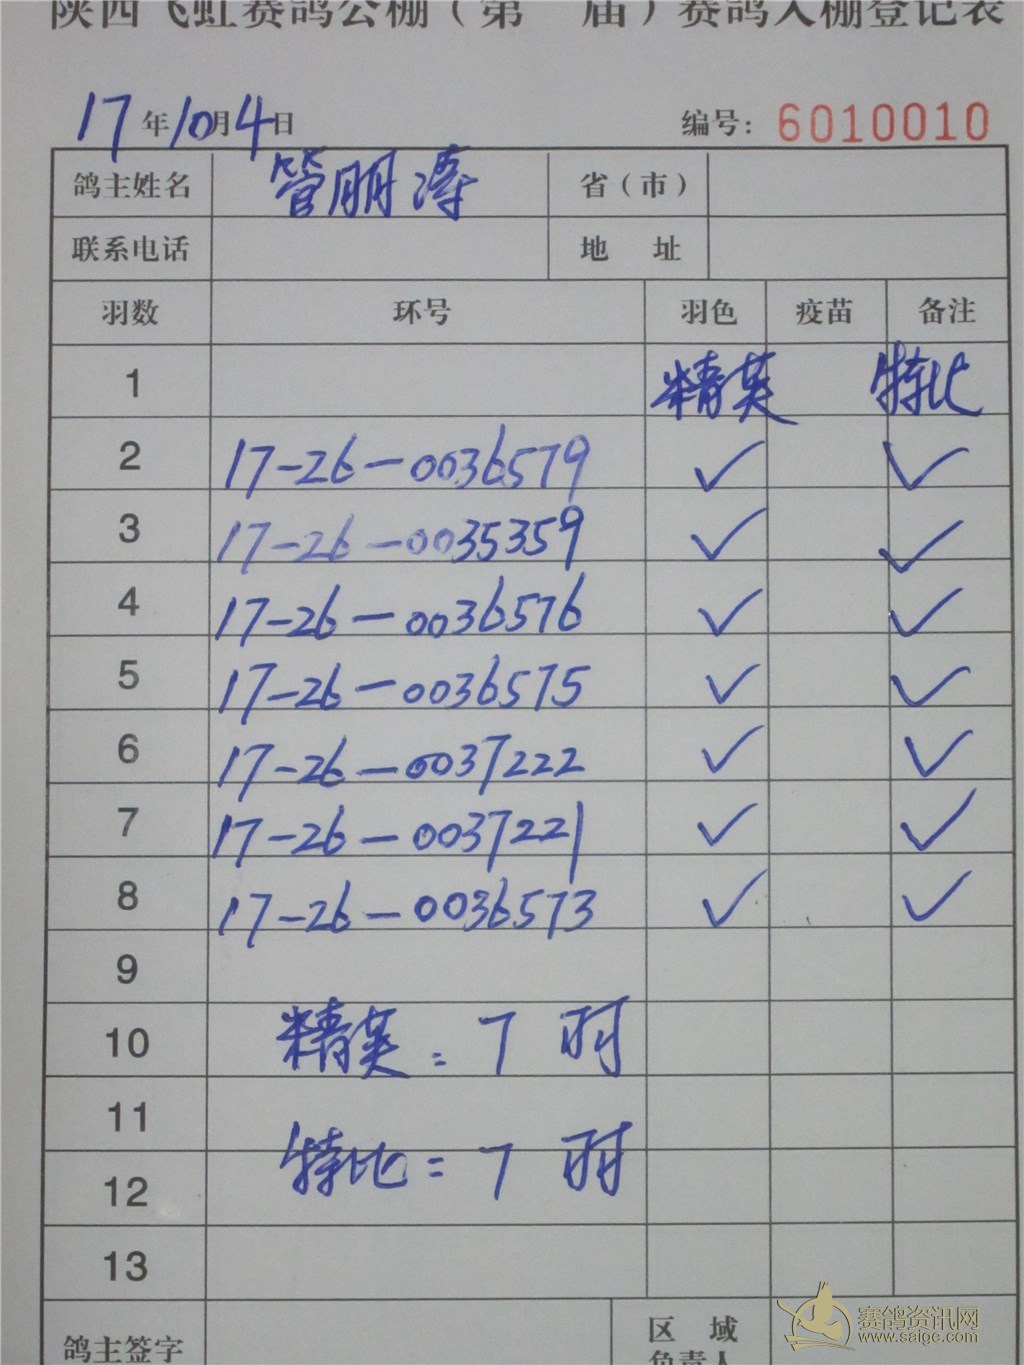 陕西飞虹赛鸽公棚（第 届）赛鸽入棚登记表
17年10月4日 编号：6010010
鸽主姓名 管朋涛 省（市）
联系电话 地 址
羽数 环号 羽色 疫苗 备注
1 精英 特比
2 17-26-0036579 ✓ ✓
3 17-26-0035359 ✓ ✓
4 17-26-0036576 ✓ ✓
5 17-26-0036575 ✓ ✓
6 17-26-0037222 ✓ ✓
7 17-26-0037221 ✓ ✓
8 17-26-0036573 ✓ ✓
9
10 精英：7 羽
11
12 特比：7 羽
13
鸽主签字 区 域
负责人
赛鸽资讯网
www.saige.com